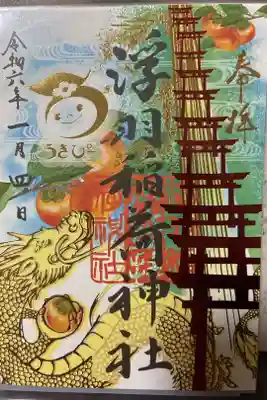 奉拝
浮羽稲荷神社
うきぴー
令和六年一月四日